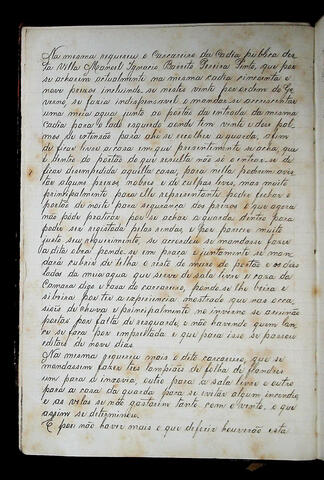 Na mesma requereu o Carcereiro da Cadia publica des-
ta Villa Manoel Ignacio Barreto Pereira Pinto, que por
se acharem actualmente na mesma cadia cincoenta e
nove prezos incluindo-se nestes vinte por ordem do Go-
verno, se fazia indispensavel o mandar-se accrescentar
uma meia agua junto ao portão da entrada da mesma
cadia para o lado esquerdo aonde tem vinte e dois pal-
mos de extensão para ahi se recolher a guarda, afim
de ficar livre a casa em que presentemente se acha, que
é dentro do portão do que resulta não só o entrar-se de
ficar desempedida aquella casa, para nella poderem es-
tar alguns prezos nobres e de culpas leves, mas muito
principalmente para elle representante poder fechar o
portão de noite para segurança dos prezos o que agora
não pode praticar por se achar a guarda dentro para
poder ser vigiada pelas rondas, e por parecer muito
justo seu requerimento, se accordou se mandasse fazer
a dita obra pondo-se em praça e juntamente se man-
dará cubrir de telha o resto do muro do portão e os dois
lados da meia agua que serve de sala livre a casa da
Camara digo a casa do carcereiro, pondo-se lhe beira e
sibeira por ter a experiencia mostrado que nas occa-
siões de chuva e principalmente no inverno se arruinão
portas por falta de resguardo, e não havendo quem lan-
ce se faça por empreitada e que para isso se passem
editaes de nove dias.
Na mesma requereu mais o dito carcereiro, que se
mandassem fazer tres lampiões de folha de flandres
um para a inxovia, outro para a sala livre e outro
para a casa da guarda para se evitar algum incendio
e as velas se não gastarem tanto com o vento, o que
assim se determinou.
E por não haver mais o que deferir houverão esta